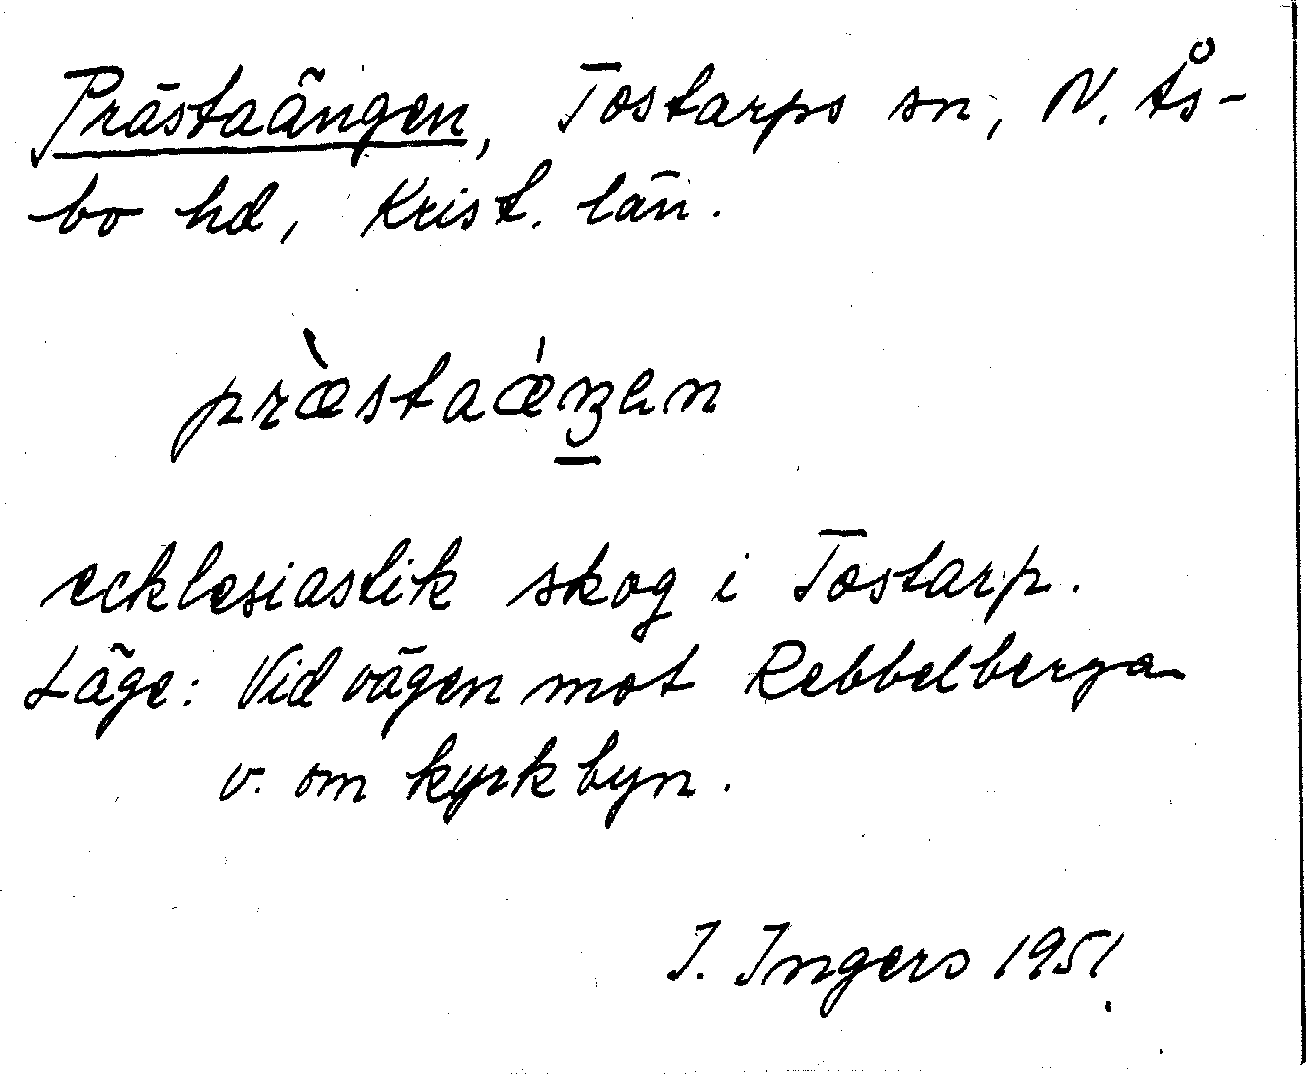 Prästaängen, Tostarps sn, N. Ås-
bo hd, Krist. län.
præ̀staǽŋen
ecklesiastik skog i Tostarp.
Läge: Vid vägen mot Rebbelberga
v. om kyrkbyn.
I. Ingers 1951